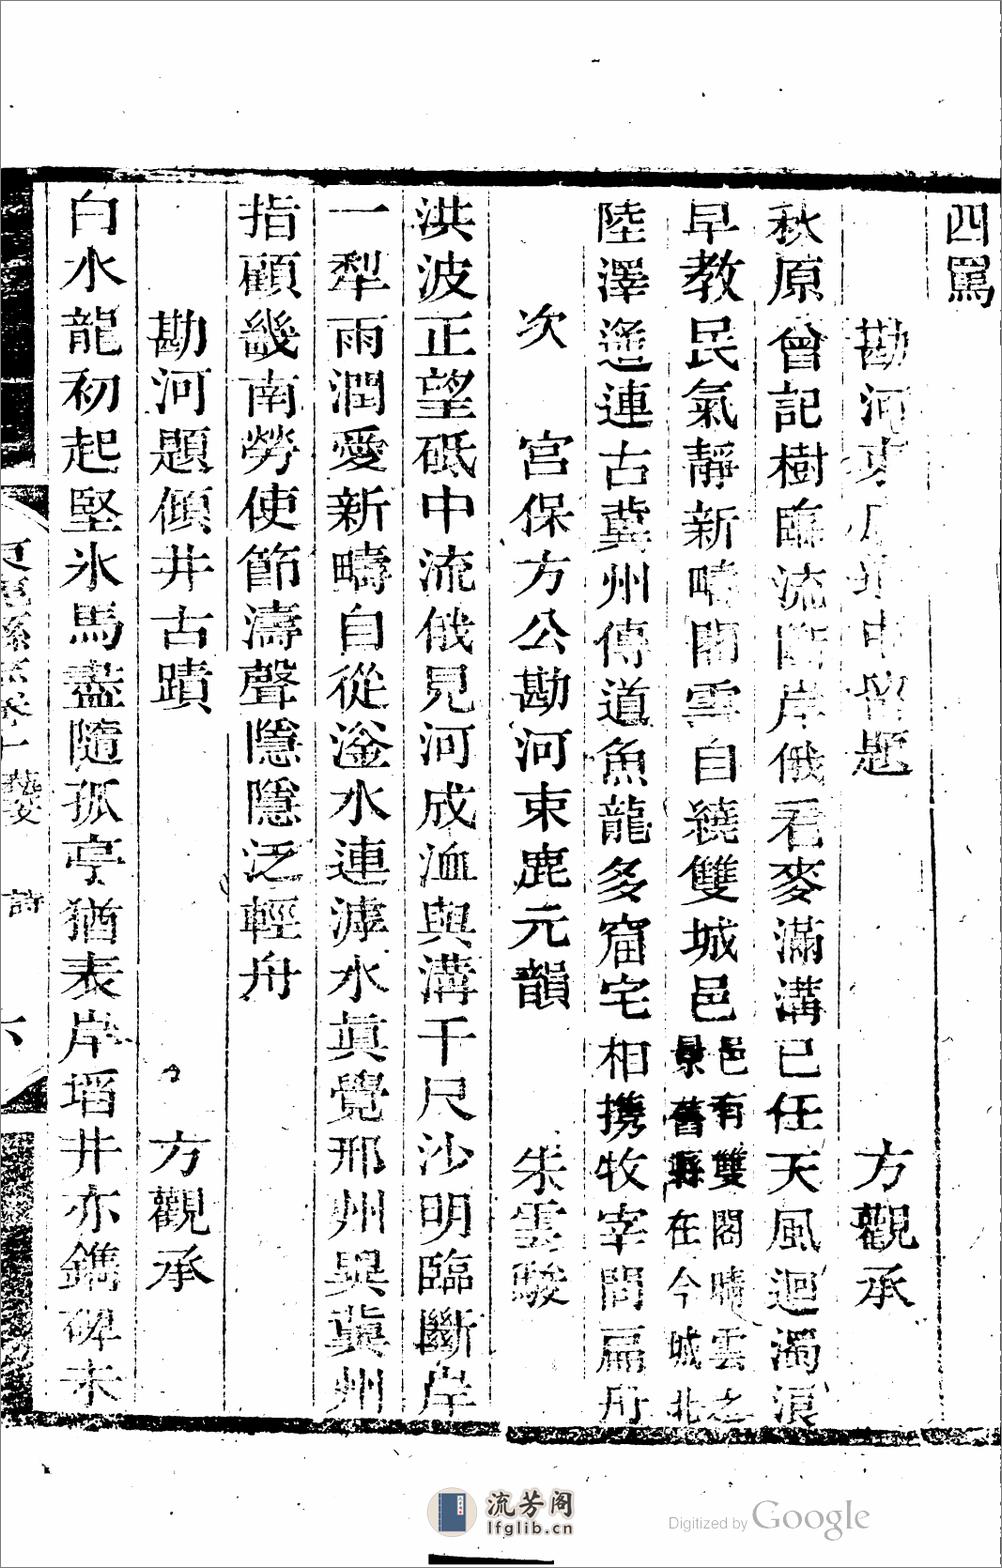 四罵
勘河束鹿舟中留題　方觀承
秋原曾記樹臨流斷岸俄看麥滿溝已任天風迴濁浪
早教民氣靜新疇閣雲自繞雙城邑邑有雙閣晴雲之景舊縣在今城北
陸澤遙連古冀州傳道魚龍多窟宅相攜牧宰問扁舟
次　宮保方公勘河束鹿元韻　朱雲駿
洪波正望砥中流俄見河成洫與溝千尺沙明臨斷岸
一犁雨潤愛新疇自從滏水連滹水眞覺邢州異冀州
指顧畿南勞使節濤聲隱隱泛輕舟
勘河題傾井古蹟　方觀承
白水龍初起堅氷馬盡隨孤亭猶表岸塌井亦鐫碑未
束鹿縣志卷十藝　詩　六
流芳阁
lfglib.cn
Digitized by Google